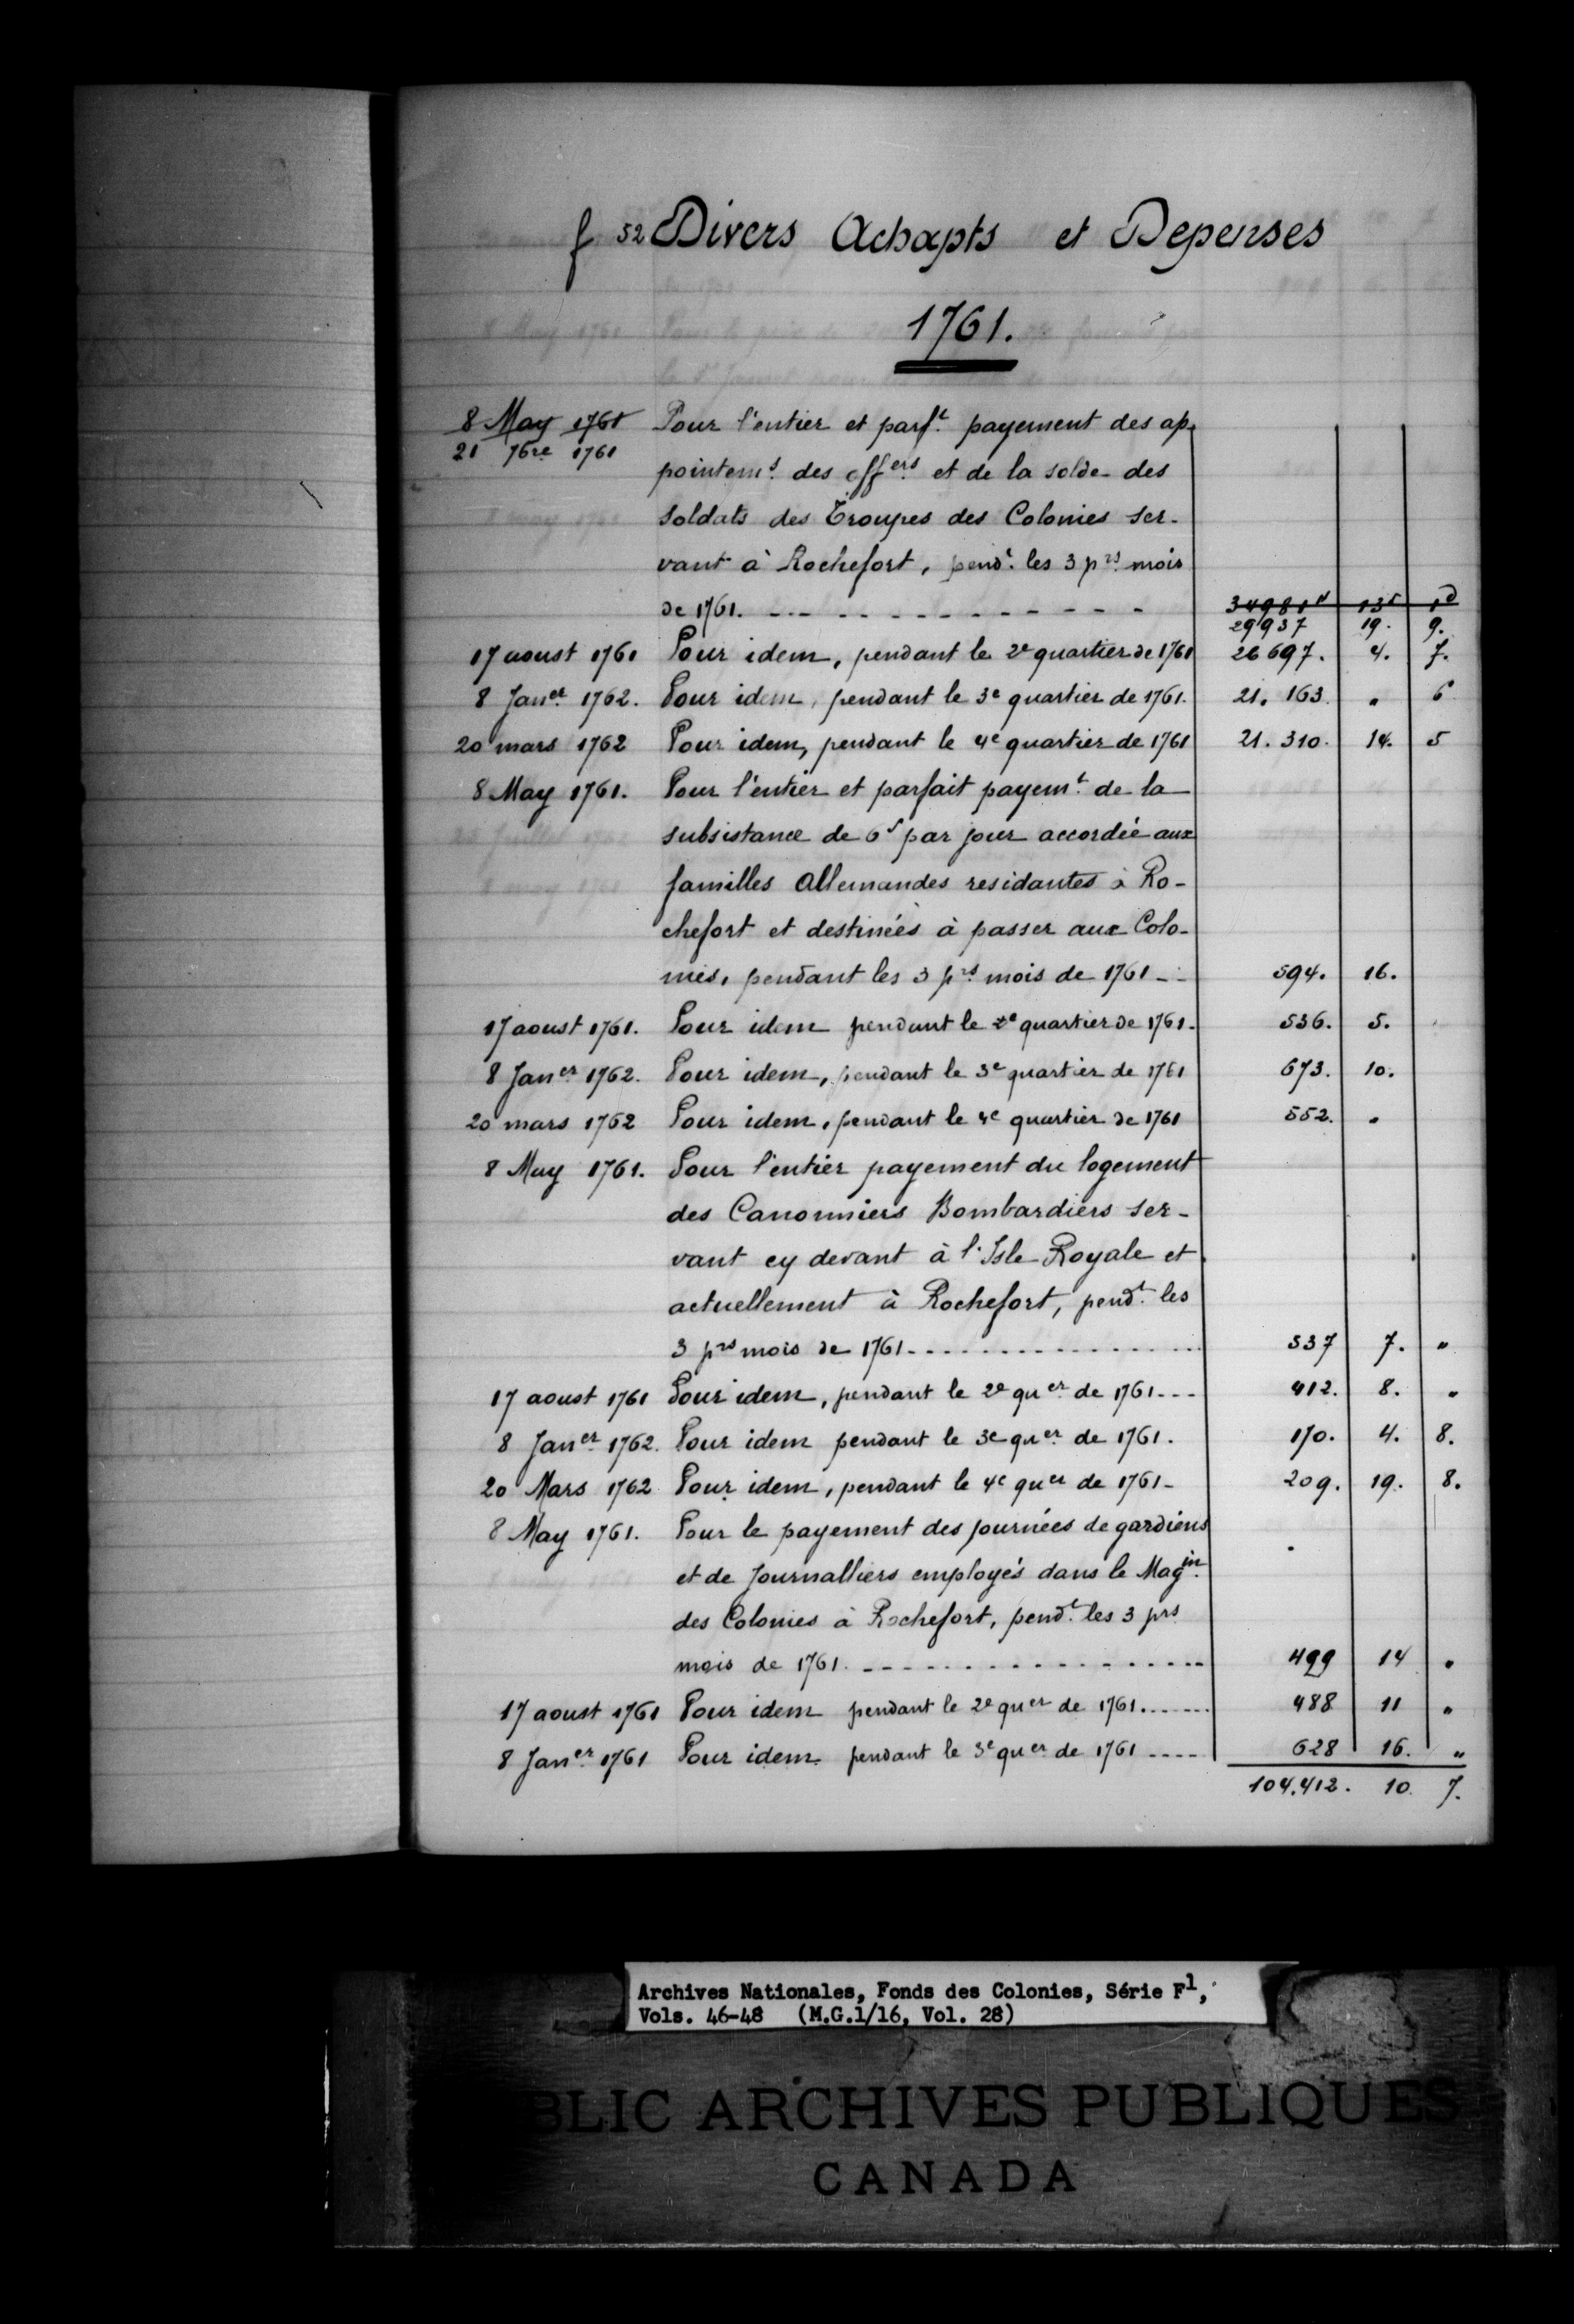 f 52 Divers Achapts et Depenses
1761.
8 May 1761 Pour l'entier et parf.t payement des ap-
21 7bre 1761
pointem.s des off.ers et de la solde des
soldats des Troupes des Colonies ser-
vant à Rochefort, pend.t les 3 p.rs mois
de 1761. 34981# 13s 1d
29937 19. 9.
17 aoust 1761 Pour idem, pendant le 2e quartier de 1761 26697. 4. 7.
8 Jan.er 1762. Pour idem, pendant le 3e quartier de 1761. 21.163. " 6
20 mars 1762 Pour idem, pendant le 4e quartier de 1761 21.310. 14. 5
8 May 1761. Pour l'entier et parfait payem.t de la
subsistance de 6s par jour accordée aux
familles Allemandes residantes à Ro-
chefort et destinées à passer aux Colo-
nies, pendant les 3 p.rs mois de 1761 594. 16.
17 aoust 1761. Pour idem pendant le 2e quartier de 1761. 536. 5.
8 Jan.er 1762. Pour idem, pendant le 3e quartier de 1761 673. 10.
20 mars 1762 Pour idem, pendant le 4e quartier de 1761 552. "
8 May 1761. Pour l'entier payement du logement
des Canonniers Bombardiers ser-
vant cy devant à l'Isle Royale et
actuellement à Rochefort, pend.t les
3 p.rs mois de 1761 537 7. "
17 aoust 1761 Pour idem, pendant le 2e qu.er de 1761 412. 8. "
8 Jan.er 1762. Pour idem pendant le 3e qu.er de 1761. 170. 4. 8.
20 Mars 1762 Pour idem, pendant le 4e qu.er de 1761 209. 19. 8.
8 May 1761. Pour le payement des journées de gardiens
et de Journalliers employés dans le Mag.in
des Colonies à Rochefort, pend.t les 3 prs
mois de 1761. 499 14 "
17 aoust 1761 Pour idem pendant le 2e quer de 1761 488 11 "
8 Jan.er 1761 Pour idem pendant le 3e quer de 1761 628 16. "
104.412. 10. 7.
Archives Nationales, Fonds des Colonies, Série F1,
Vols. 46-48 (M.G.1/16, Vol. 28)
BLIC ARCHIVES PUBLIQUES
CANADA